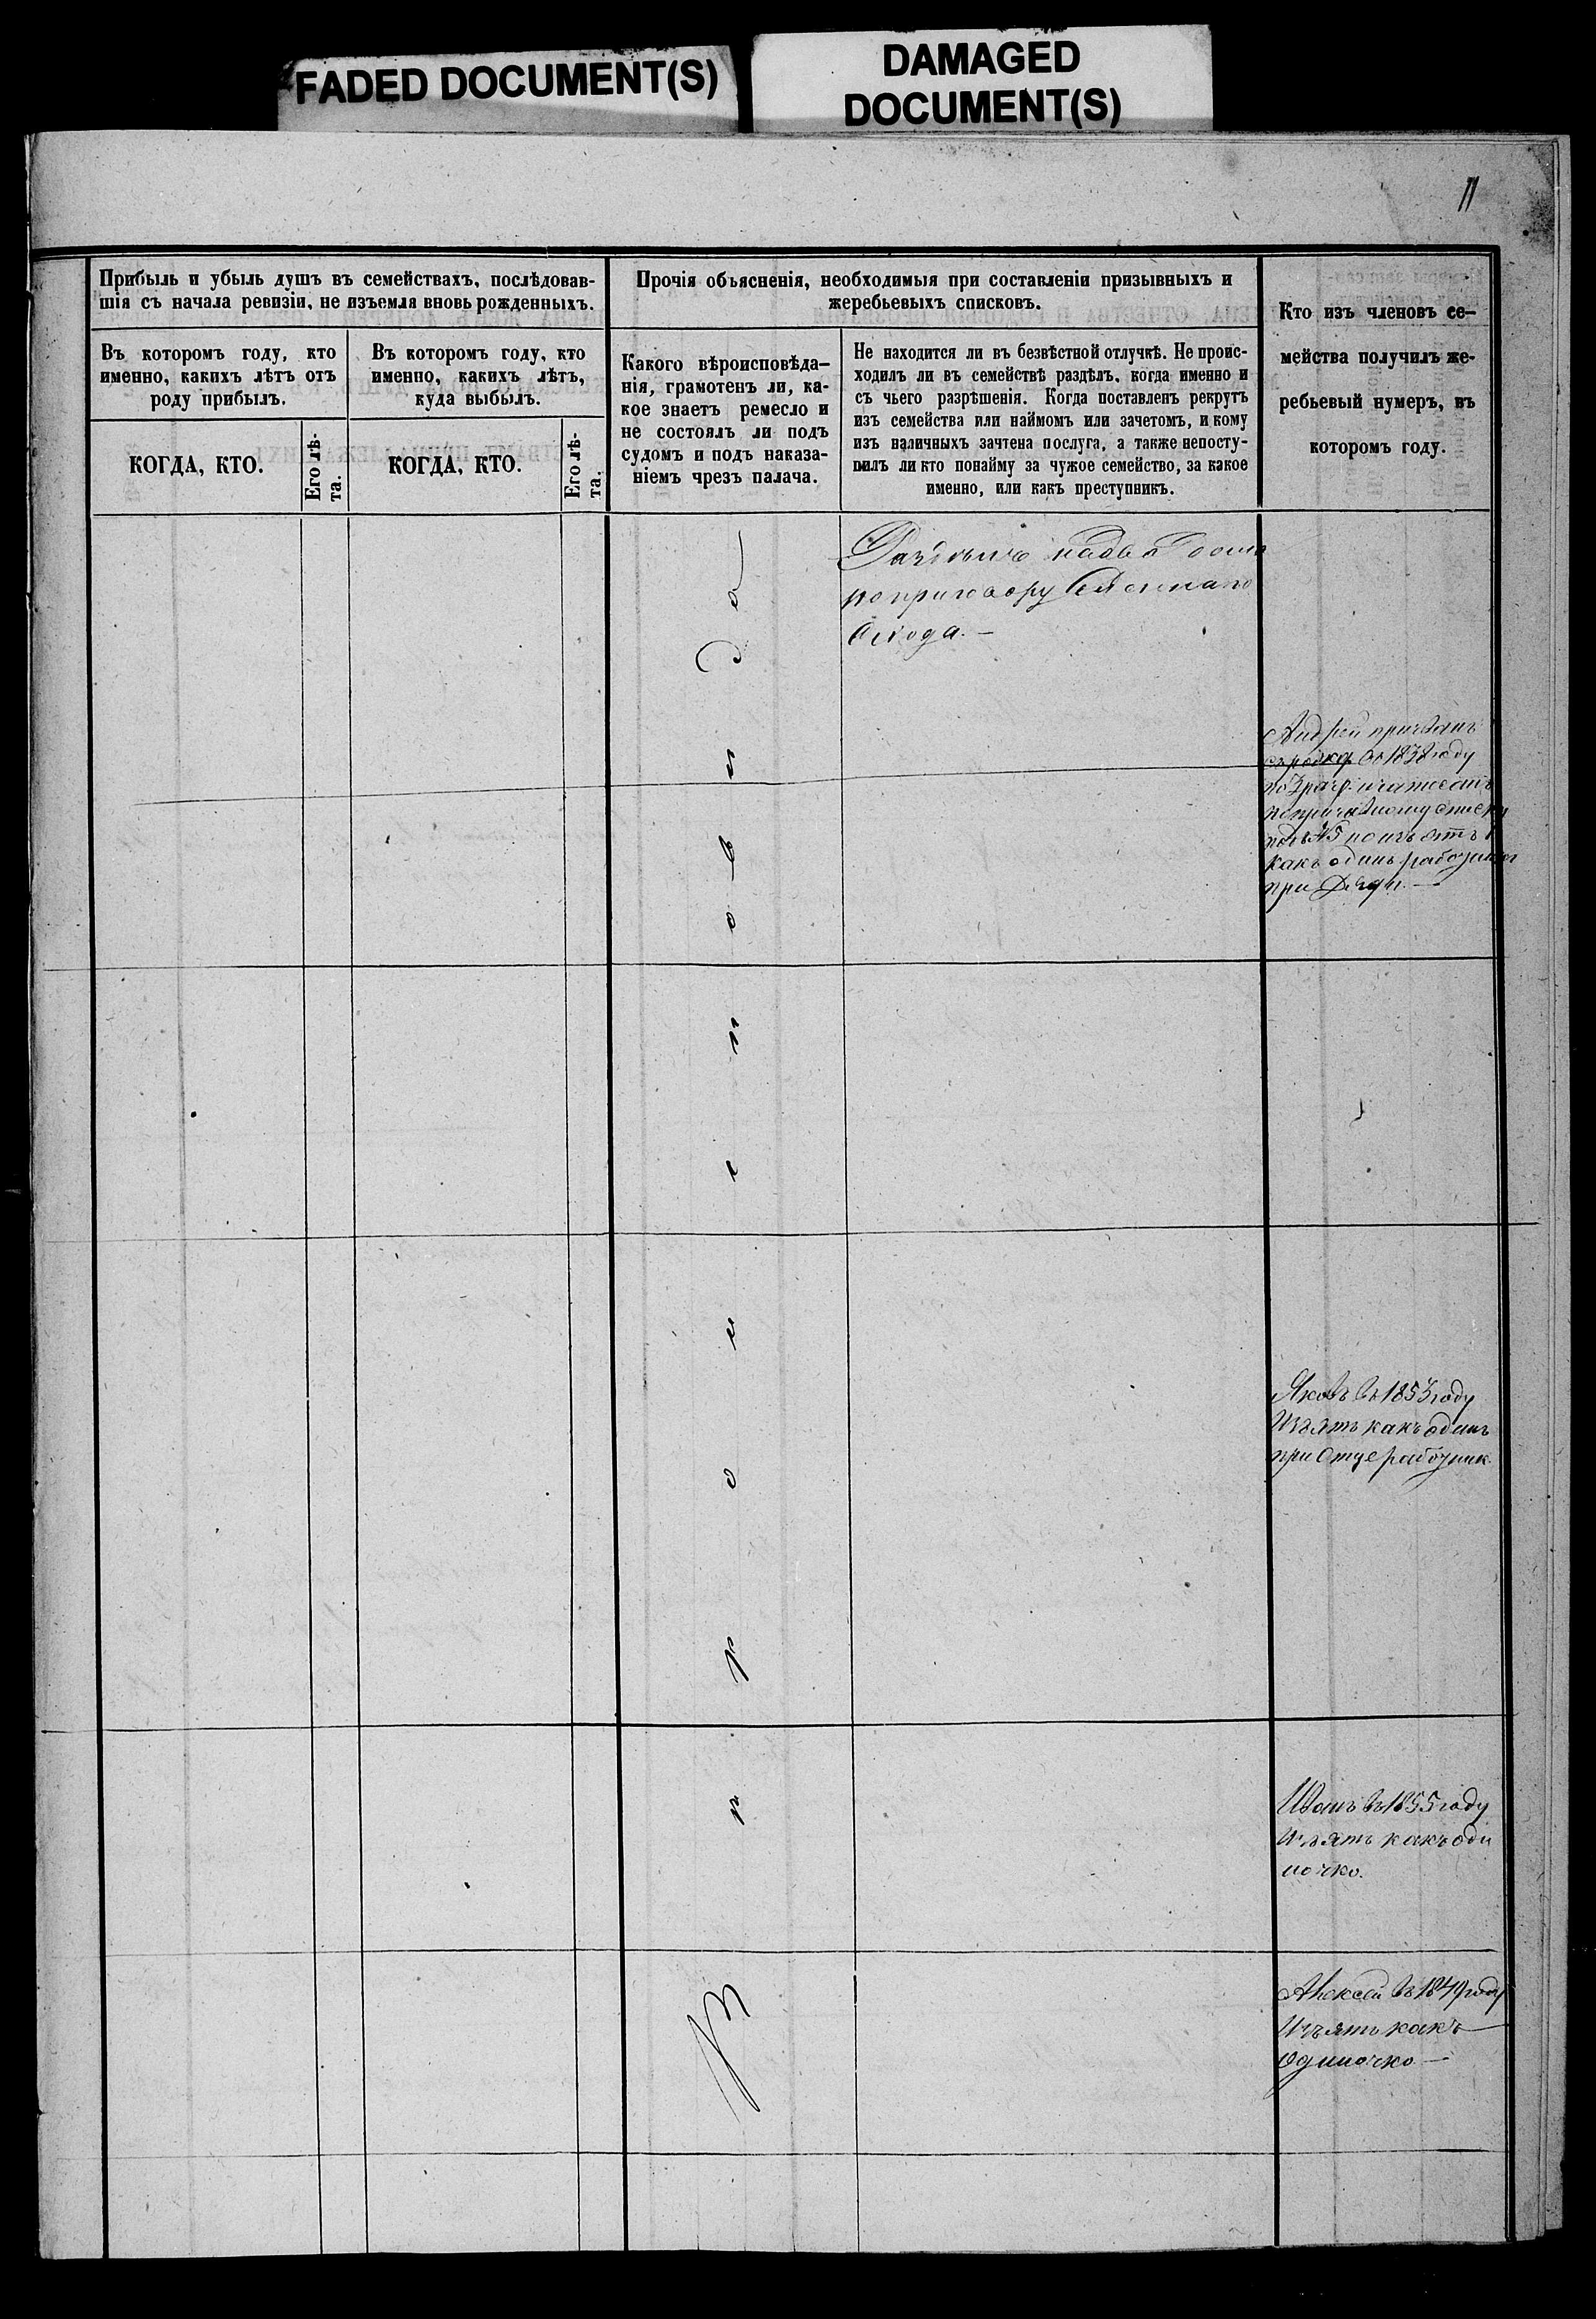 FADED DOCUMENT(S)
DAMAGED
DOCUMENT(S)
11
Прибыль и убыль душъ въ семействахъ, послѣдовав-
шія съ начала ревизіи, не изъемля вновь рожденныхъ.
Въ которомъ году, кто
именно, какихъ лѣтъ отъ
роду прибылъ.
КОГДА, КТО.
Его лѣ-
та.
Въ которомъ году, кто
именно, какихъ лѣтъ,
куда выбылъ.
КОГДА, КТО.
Его лѣ-
та.
Прочія объясненія, необходимыя при составленіи призывныхъ и
жеребьевыхъ списковъ.
Какого вѣроисповѣда-
нія, грамотенъ ли, ка-
кое знаетъ ремесло и
не состоялъ ли подъ
судомъ и подъ наказа-
ніемъ чрезъ палача.
Не находится ли въ безвѣстной отлучкѣ. Не проис-
ходилъ ли въ семействѣ раздѣлъ, когда именно и
съ чьего разрѣшенія. Когда поставленъ рекрутъ
изъ семейства или наймомъ или зачетомъ, и кому
изъ наличныхъ зачтена послуга, а также непосту-
пилъ ли кто понайму за чужое семейство, за какое
именно, или какъ преступникъ.
Кто изъ членовъ се-
мейства получилъ же-
ребьевый нумеръ, въ
которомъ году.
по приговору
Схода.—
Андрей призванъ
въ 1858 году
какъ одинъ работникъ
при
Яковъ въ 1853 году
Изъятъ какъ одинъ
при Отце работник
Иванъ въ 1855 году
Изъятъ какъ оди
ночко.
Алексей въ 1849 году
Изъятъ какъ
Одиночко —